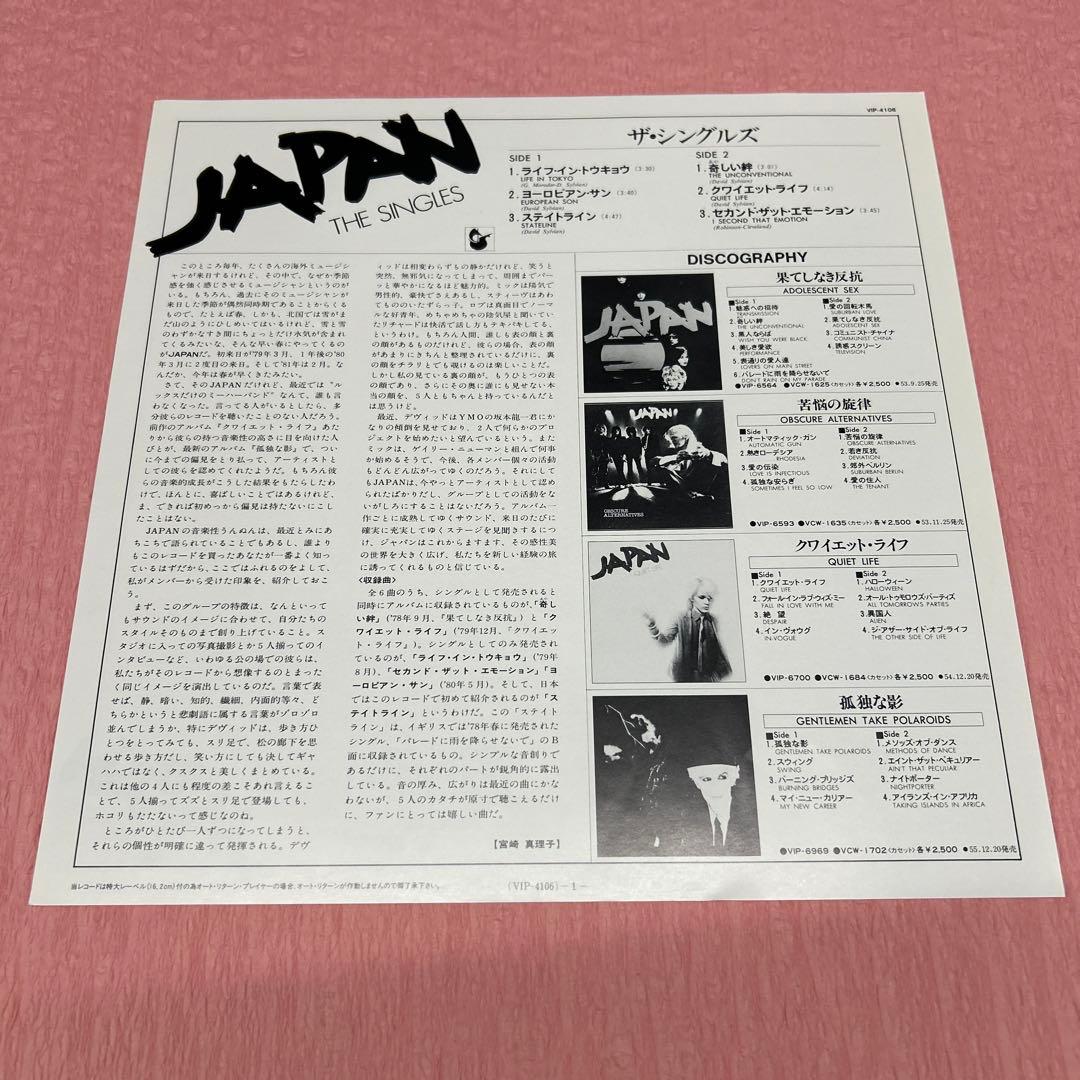 VIP-4106
JAPAN
THE SINGLES
ザ・シングルズ
SIDE 1
1. ライフ・イン・トウキョウ (3:30)
LIFE IN TOKYO
(G. Morodor-D. Sylvian)
2. ヨーロピアン・サン (3:40)
EUROPEAN SON
(David Sylvian)
3. ステイトライン (4:47)
STATELINE
(David Sylvian)
SIDE 2
1. 奇しい絆 (3:01)
THE UNCONVENTIONAL
(David Sylvian)
2. クワイエット・ライフ (4:14)
QUIET LIFE
(David Sylvian)
3. セカンド・ザット・エモーション (3:45)
I SECOND THAT EMOTION
(Robinson-Cleveland)
このところ毎年、たくさんの海外ミュージシ
ャンが来日するけれど、その中で、なぜか季節
感を強く感じさせるミュージシャンというのが
いる。もちろん、過去にそのミュージシャンが
来日した季節が偶然同時期であることからくる
もので、たとえば春、しかも、北国では雪がま
だ山のようにひしめいてはいるけれど、雪と雪
のわずかなすき間にちょっとだけ水気が含まれ
てくるみたいな、そんな早い春にやってくるの
がJAPANだ。初来日が'79年3月、1年後の'80
年3月に2度目の来日。そして'81年は2月。な
んだか、今年は春が早くきたみたい。
さて、そのJAPANだけれど、最近では“ル
ックスだけのミーハーバンド”なんて、誰も言
わなくなった。言ってる人がいるとしたら、多
分彼らのレコードを聴いたことのない人だろう。
前作のアルバム『クワイエット・ライフ』あた
りから彼らの持つ音楽性の高さに目を向けた人
びとが、最新のアルバム『孤独な影』で、つい
に今までの偏見をとり払って、アーティストと
しての彼らを認めてくれたようだ。もちろん彼
らの音楽的成長がこうした結果をもたらしたわ
けで、ほんとに、喜ばしいことではあるけれど、
ま、できれば初めっから偏見は持たないにこし
たことはない。
JAPANの音楽性うんぬんは、最近とみにあ
ちこちで語られていることでもあるし、誰より
もこのレコードを買ったあなたが一番よく知っ
ているはずだから、ここではふれるのをよして、
私がメンバーから受けた印象を、紹介しておこ
う。
まず、このグループの特徴は、なんといって
もサウンドのイメージに合わせて、自分たちの
スタイルそのものまで創り上げていること。ス
タジオに入っての写真撮影とか5人揃ってのイ
ンタビューなど、いわゆる公の場での彼らは、
私たちがそのレコードから想像するのとまった
く同じイメージを演出しているのだ。言葉で表
せば、静、暗い、知的、繊細、内面的等々、ど
ちらかというと悲劇語に属する言葉がゾロゾロ
並んでしまうか、特にデヴィッドは、歩き方ひ
とつをとってみても、スリ足で、松の廊下を思
わせる歩き方だし、笑い方にしても決してギャ
ハハではなく、クスクスと美しくまとめている。
これは他の4人にも程度の差こそあれ言えるこ
とで、5人揃ってズズとスリ足で登場しても、
ホコリもたたないって感じなのね。
ところがひとたび一人ずつになってしまうと、
それらの個性が明確に違って発揮される。デヴ
ィッドは相変わらずもの静かだけれど、笑うと
突然、無邪気になってしまって、周囲までパー
ッと華やかになるほど魅力的。ミックは陽気で
男性的、豪快でさえあるし、スティーヴはあわ
てもののいたずらっ子。ロブは真面目でノーマ
ルな好青年、めちゃめちゃの陰気屋と聞いてい
たリチャードは快活で話し方もテキパキしてる、
というわけ。もちろん人間、誰しも表の顔と裏
の顔があるものだけれど、彼らの場合、表の顔
があまりにきちんと整理されているだけに、裏
の顔をチラリとでも覗けるのは楽しいことだ。
しかし私の見ている裏の顔が、もうひとつの表
の顔であり、さらにその奥に誰にも見せない本
当の顔を、5人ともちゃんと持っているんだと
は思うけど。
最近、デヴィッドはYMOの坂本龍一君にか
なりの傾倒を見せており、2人で何らかのプロ
ジェクトを始めたいと望んでいるという。また
ミックは、ゲイリー・ニューマンと組んで何事
か始めるそうで、今後、各メンバー個々の活動
もどんどん広がってゆくのだろう。それにして
もJAPANは、今やっとアーティストとして認め
られたばかりだし、グループとしての活動をな
いがしろにすることはないだろう。アルバム一
作ごとに成熟してゆくサウンド、来日のたびに
確実に充実してゆくステージを見聞きするにつ
け、ジャパンはこれからますます、その感性美
の世界を大きく広げ、私たちを新しい経験の旅
に誘ってくれるものと信じている。
〈収録曲〉
全6曲のうち、シングルとして発売されると
同時にアルバムに収録されているものが、「奇し
い絆」('78年9月、『果てしなき反抗』)と「ク
ワイエット・ライフ」('79年12月、『クワイエッ
ト・ライフ』)。シングルとしてのみ発売されて
いるのが、「ライフ・イン・トウキョウ」('79年
8月)、「セカンド・ザット・エモーション」「ヨ
ーロピアン・サン」('80年5月)。そして、日本
ではこのレコードで初めて紹介されるのが「ス
テイトライン」というわけだ。この「ステイト
ライン」は、イギリスでは'78年春に発売された
シングル、「パレードに雨を降らせないで」のB
面に収録されているもの。シンプルな音創りで
あるだけに、それぞれのパートが鋭角的に露出
している。音の厚み、広がりは最近の曲にかな
わないが、5人のカタチが原寸で聴こえるだけ
に、ファンにとっては嬉しい曲だ。
【宮崎 真理子】
DISCOGRAPHY
JAPAN
果てしなき反抗
ADOLESCENT SEX
■Side 1
1. 魅惑への招待
TRANSMISSION
2. 奇しい絆
THE UNCONVENTIONAL
3. 黒人ならば
WISH YOU WERE BLACK
4. 美しき愛欲
PERFORMANCE
5. 表通りの愛人達
LOVERS ON MAIN STREET
6. パレードに雨を降らせないで
DON'T RAIN ON MY PARADE
■Side 2
1. 愛の回転木馬
SUBURBAN LOVE
2. 果てしなき反抗
ADOLESCENT SEX
3. コミュニスト・チャイナ
COMMUNIST CHINA
4. 誘惑スクリーン
TELEVISION
●VIP-6564 ●VCW-1625〈カセット〉各¥2,500 ●53.9.25発売
JAPAN
OBSCURE
ALTERNATIVES
苦悩の旋律
OBSCURE ALTERNATIVES
■Side 1
1. オートマティック・ガン
AUTOMATIC GUN
2. 熱きローデシア
RHODESIA
3. 愛の伝染
LOVE IS INFECTIOUS
4. 孤独な安らぎ
SOMETIMES I FEEL SO LOW
■Side 2
1. 苦悩の旋律
OBSCURE ALTERNATIVES
2. 若き反抗
DEVIATION
3. 郊外ベルリン
SUBURBAN BERLIN
4. 愛の住人
THE TENANT
●VIP-6593 ●VCW-1635〈カセット〉各¥2,500 ●53.11.25発売
JAPAN
クワイエット・ライフ
QUIET LIFE
■Side 1
1. クワイエット・ライフ
QUIET LIFE
2. フォール・イン・ラブ・ウィズ・ミー
FALL IN LOVE WITH ME
3. 絶望
DESPAIR
4. イン・ヴォウグ
IN-VOGUE
■Side 2
1. ハロー・ウィーン
HALLOWEEN
2. オール・トゥモロウズ・パーティズ
ALL TOMORROWS PARTIES
3. 異国人
ALIEN
4. ジ・アザー・サイド・オブ・ライフ
THE OTHER SIDE OF LIFE
●VIP-6700 ●VCW-1684〈カセット〉各¥2,500 ●54.12.20発売
孤独な影
GENTLEMEN TAKE POLAROIDS
■Side 1
1. 孤独な影
GENTLEMEN TAKE POLAROIDS
2. スウィング
SWING
3. バーニング・ブリッジズ
BURNING BRIDGES
4. マイ・ニュー・カリアー
MY NEW CAREER
■Side 2
1. メソッズ・オブ・ダンス
METHODS OF DANCE
2. エイント・ザット・ペキュリアー
AIN'T THAT PECULIAR
3. ナイトポーター
NIGHTPORTER
4. アイランズ・イン・アフリカ
TAKING ISLANDS IN AFRICA
●VIP-6969 ●VCW-1702〈カセット〉各¥2,500 ●55.12.20発売
当レコードは特大レーベル(16.2cm)付の為オート・リターン・プレイヤーの場合、オート・リターンが作動しませんので御了承下さい。
(VIP-4106)－1－